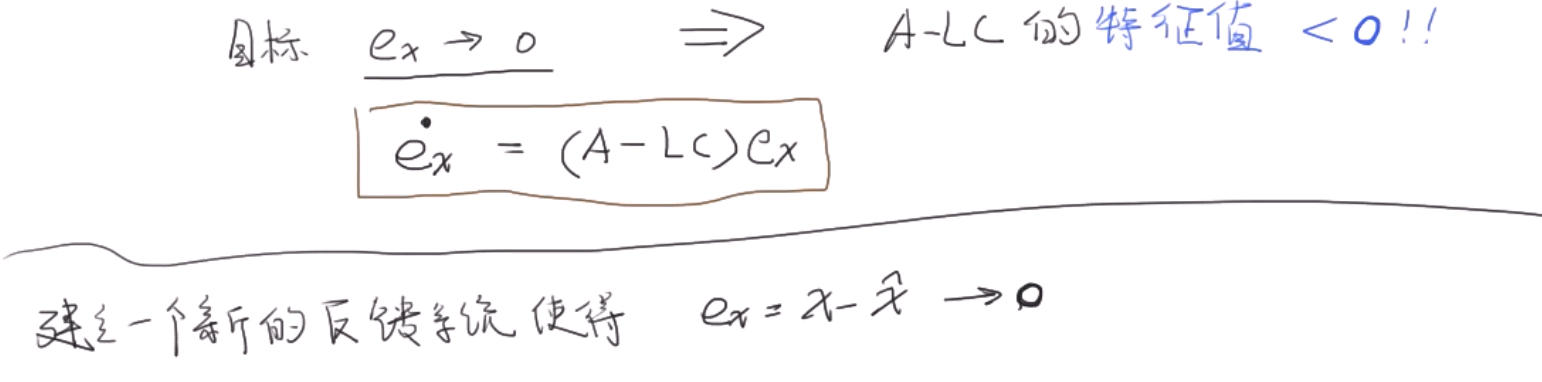 目标 eₓ → 0 ⇒ A-LC 的特征值 < 0!!
ėₓ = (A-LC)eₓ
建立一个新的反馈系统 使得 eₓ = x - x̂ → 0